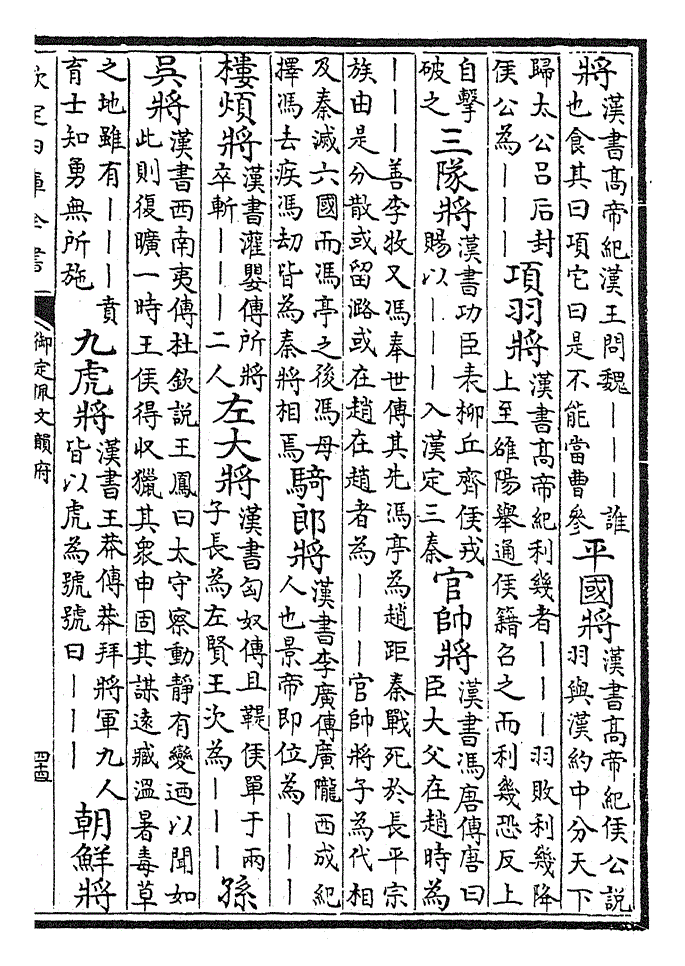 將漢書髙帝紀漢王問魏｜｜｜誰
也食其曰項它曰是不能當曹參
平國將漢書髙帝紀侯公說
羽與漢約中分天下
歸太公呂后封
侯公為｜｜｜
項羽將漢書髙帝紀利幾者｜｜｜羽敗利幾降
上至雒陽舉通侯籍召之而利幾恐反上
自擊
破之
三隊將漢書功臣表柳丘齊侯戎
賜以｜｜｜入漢定三秦
官帥將漢書馮唐傳唐曰
臣大父在趙時為
｜｜｜善李牧又馮奉世傳其先馮亭為趙距秦戰死於長平宗
族由是分散或留潞或在趙在趙者為｜｜｜官帥將子為代相
及秦滅六國而馮亭之後馮毋
擇馮去疾馮劫皆為秦將相焉
騎郎將漢書李廣傳廣隴西成紀
人也景帝即位為｜｜｜
樓煩將漢書灌嬰傳所將
卒斬｜｜｜二人
左大將漢書匈奴傳且鞮侯單于兩
子長為左賢王次為｜｜｜
孫
吳將漢書西南夷傳杜欽說王鳳曰太守察動靜有變迺以聞如
此則復曠一時王侯得收獵其衆申固其謀遠臧温暑毒草
之地雖有｜｜｜賁
育士知勇無所施
九虎將漢書王莽傳莽拜將軍九人
皆以虎為號號曰｜｜｜
朝鮮將
欽定四庫全書
御定佩文韻府